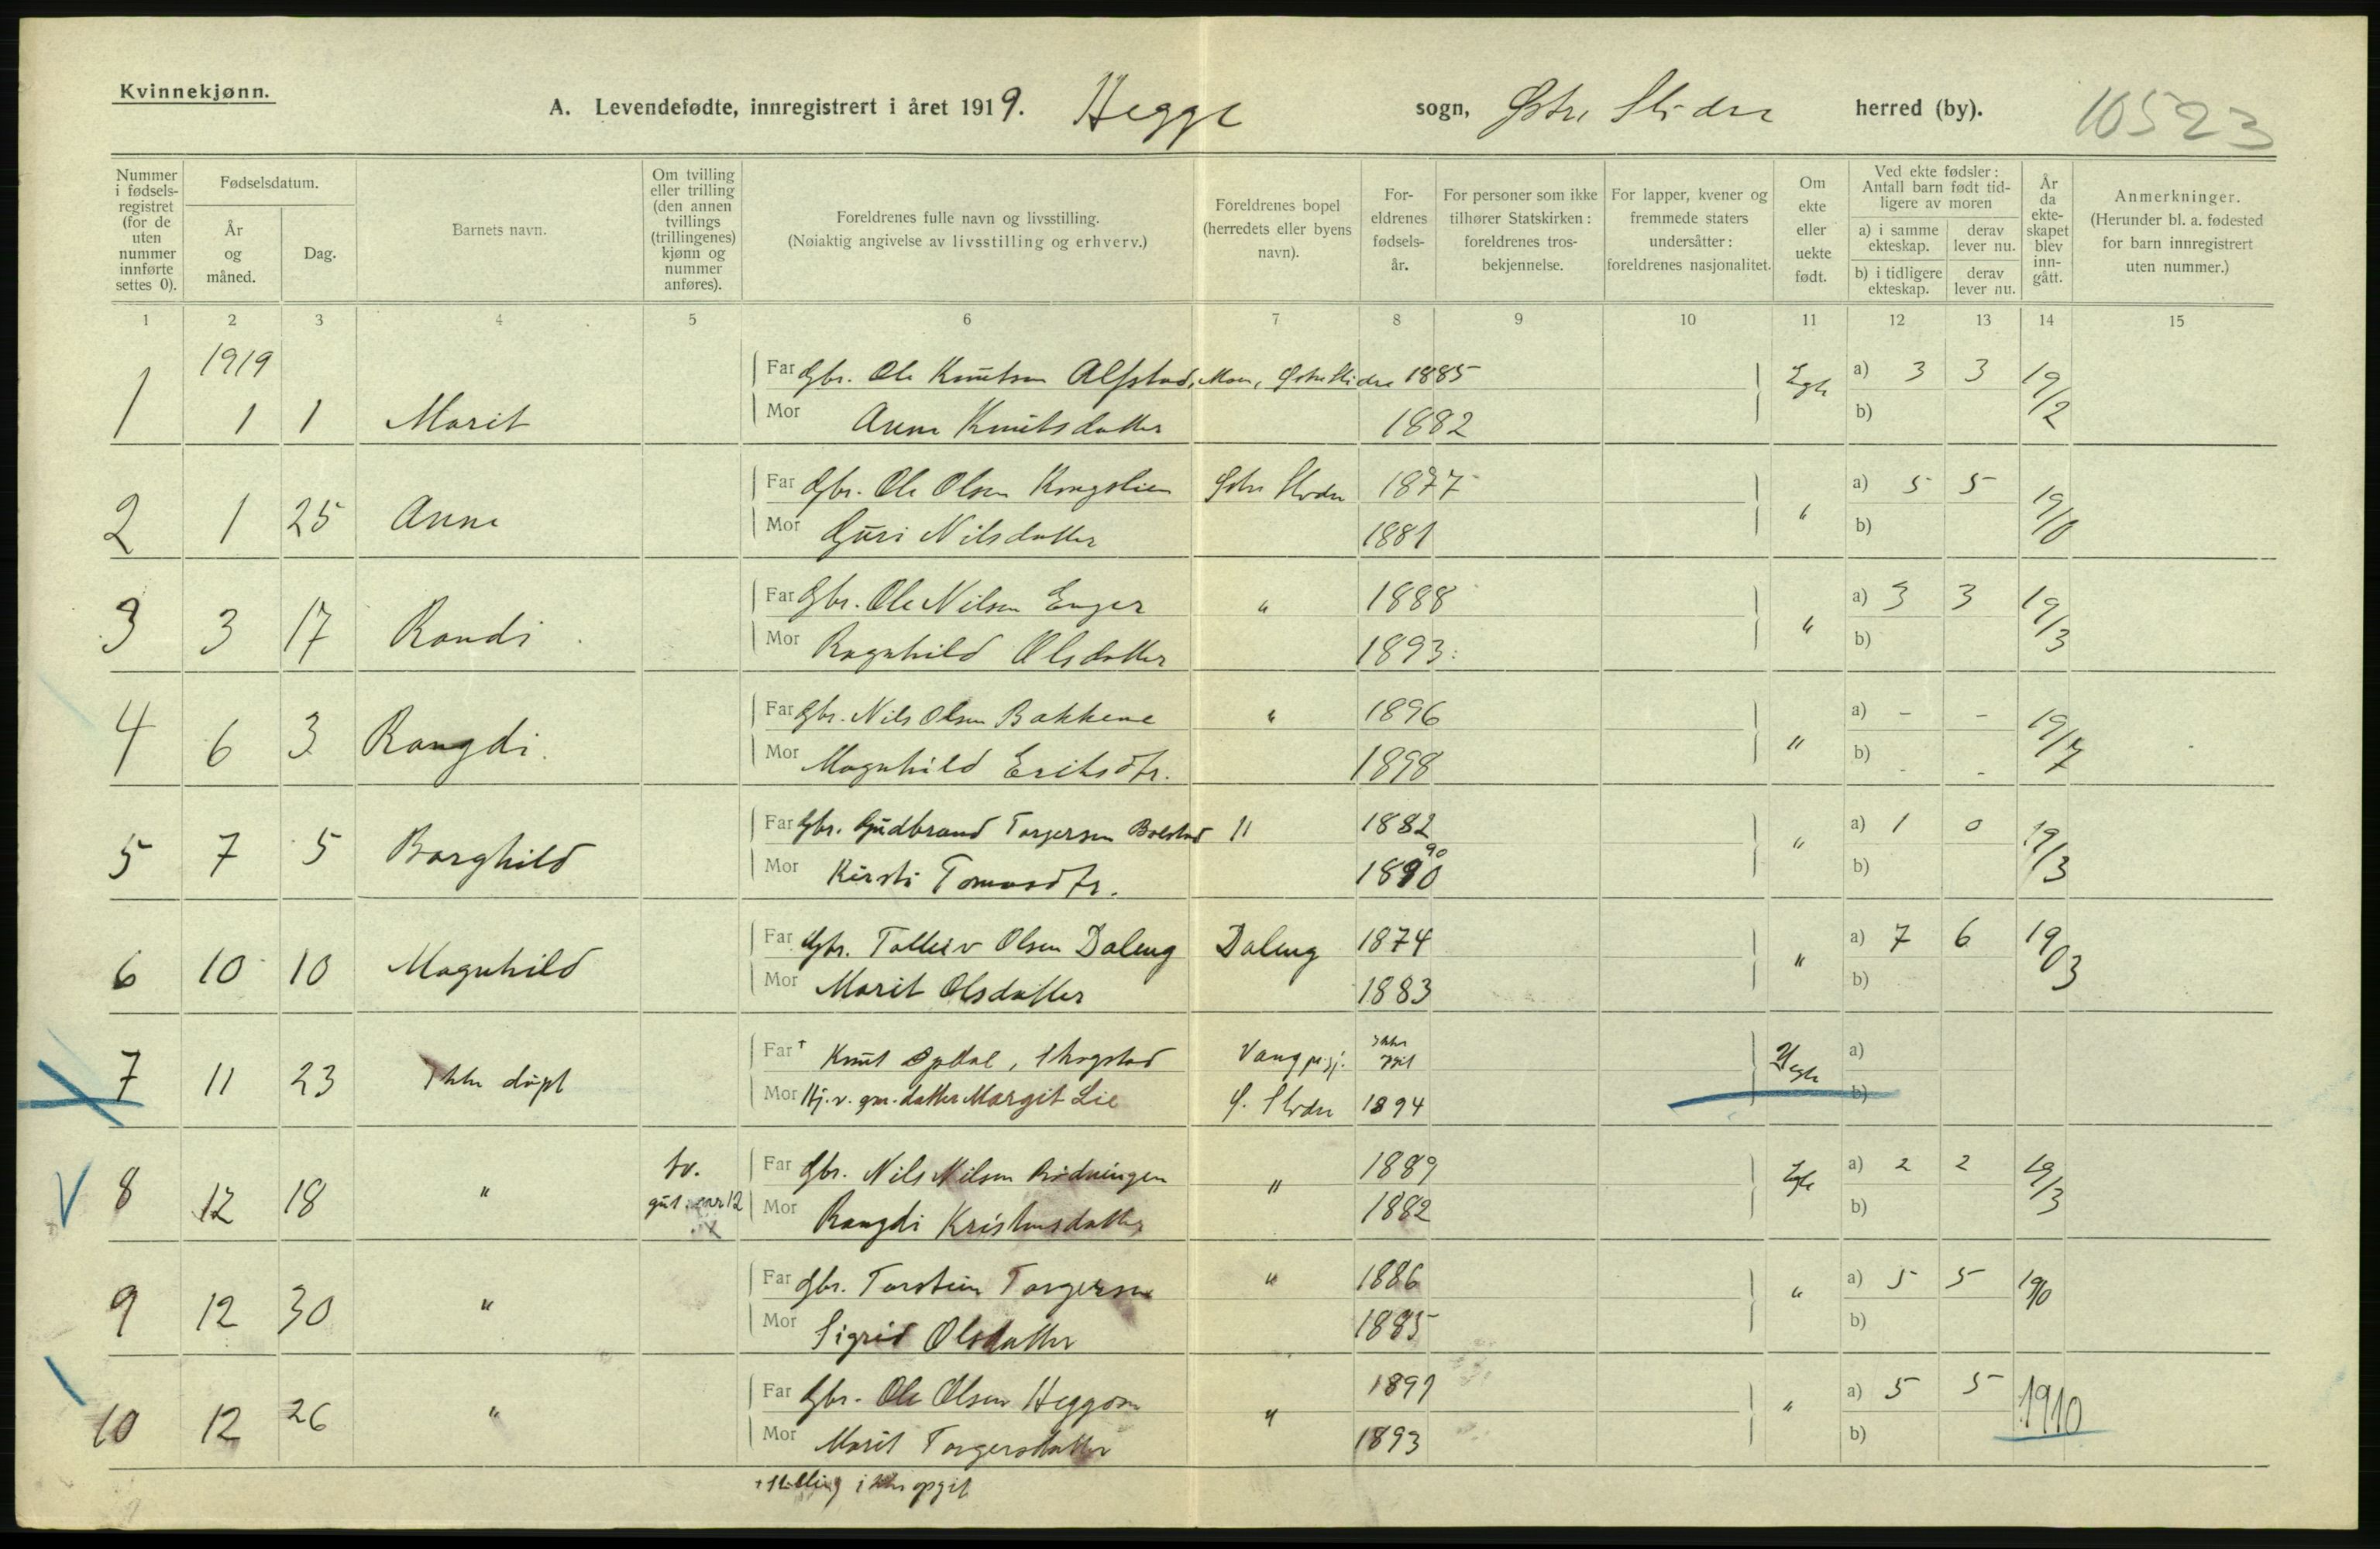 Kvinnekjønn.
A. Levendefødte, innregistrert i året 1919. Hegge sogn, Østre Slidre herred (by). 10523
Nummer i fødselsregistret (for de uten nummer innførte settes 0).
Fødselsdatum.
År og måned.
Dag.
Barnets navn.
Om tvilling eller trilling (den annen tvillings (trillingenes) kjønn og nummer anføres).
Foreldrenes fulle navn og livsstilling.
(Nøiaktig angivelse av livsstilling og erhverv.)
Foreldrenes bopel (herredets eller byens navn).
For-eldrenes fødsels-år.
For personer som ikke tilhører Statskirken: foreldrenes tros-bekjennelse.
For lapper, kvener og fremmede staters undersåtter: foreldrenes nasjonalitet.
Om ekte eller uekte født.
Ved ekte fødsler: Antall barn født tid-ligere av moren
a) i samme ekteskap. derav lever nu.
b) i tidligere ekteskap. derav lever nu.
År da ekte-skapet blev inn-gått.
Anmerkninger.
(Herunder bl. a. fødested for barn innregistrert uten nummer.)
1 2 3 4 5 6 7 8 9 10 11 12 13 14 15
1919
Far Gbr. Ole Knutsen Alfstad, Moen, Østre Slidre 1885 Egte a) 3 3 19/2
1 1 1 Marit Mor Anne Knutsdatter 1882 b)
Far Gbr. Ole Olsen Kongslien Østre Slidre 1877 " a) 5 5 19/0
2 1 25 Anne Mor Guri Nilsdatter 1881 b)
Far Gbr. Ole Nilsen Enger " 1888 " a) 3 3 19/3
3 3 17 Randi Mor Ragnhild Olsdatter 1893 b)
Far Gbr. Nils Olsen Bakkene " 1896 " a) - - 19/7
4 6 3 Rangdi. Mor Magnhild Eriksdtr. 1898 b) - -
Far Gbr. Gudbrand Torgersen Bolstad " 1882 " a) 1 0 19/3
5 7 5 Borghild Mor Kirsti Tomasdtr. 1890 90 b)
Far Gbr. Tolleiv Olsen Daleng Daleng 1874 " a) 7 6 1903
6 10 10 Magnhild Mor Marit Olsdatter 1883 b)
Far † Knut Opdal, Skogstad Vang pr.gj. Uegte a)
7 11 23 Ikke døpt Mor Hj. v. gm. datter Margit Lie Ø. Slidre 1894 b)
tv. Far Gbr. Nils Nilsen Rødningen " 1889 Egte a) 2 2 19/3
8 12 18 " gut nr 12 Mor Rangdi Kristensdatter 1882 b)
Far Gbr. Torstein Torgersen " 1886 " a) 5 5 19/0
9 12 30 " Mor Sigrid Olsdatter 1885 b)
Far Gbr. Ole Olsen Heggom " 1891 " a) 5 5 1910
10 12 26 " Mor Marit Torgersdatter 1893 b)
† Stilling ikke opgit